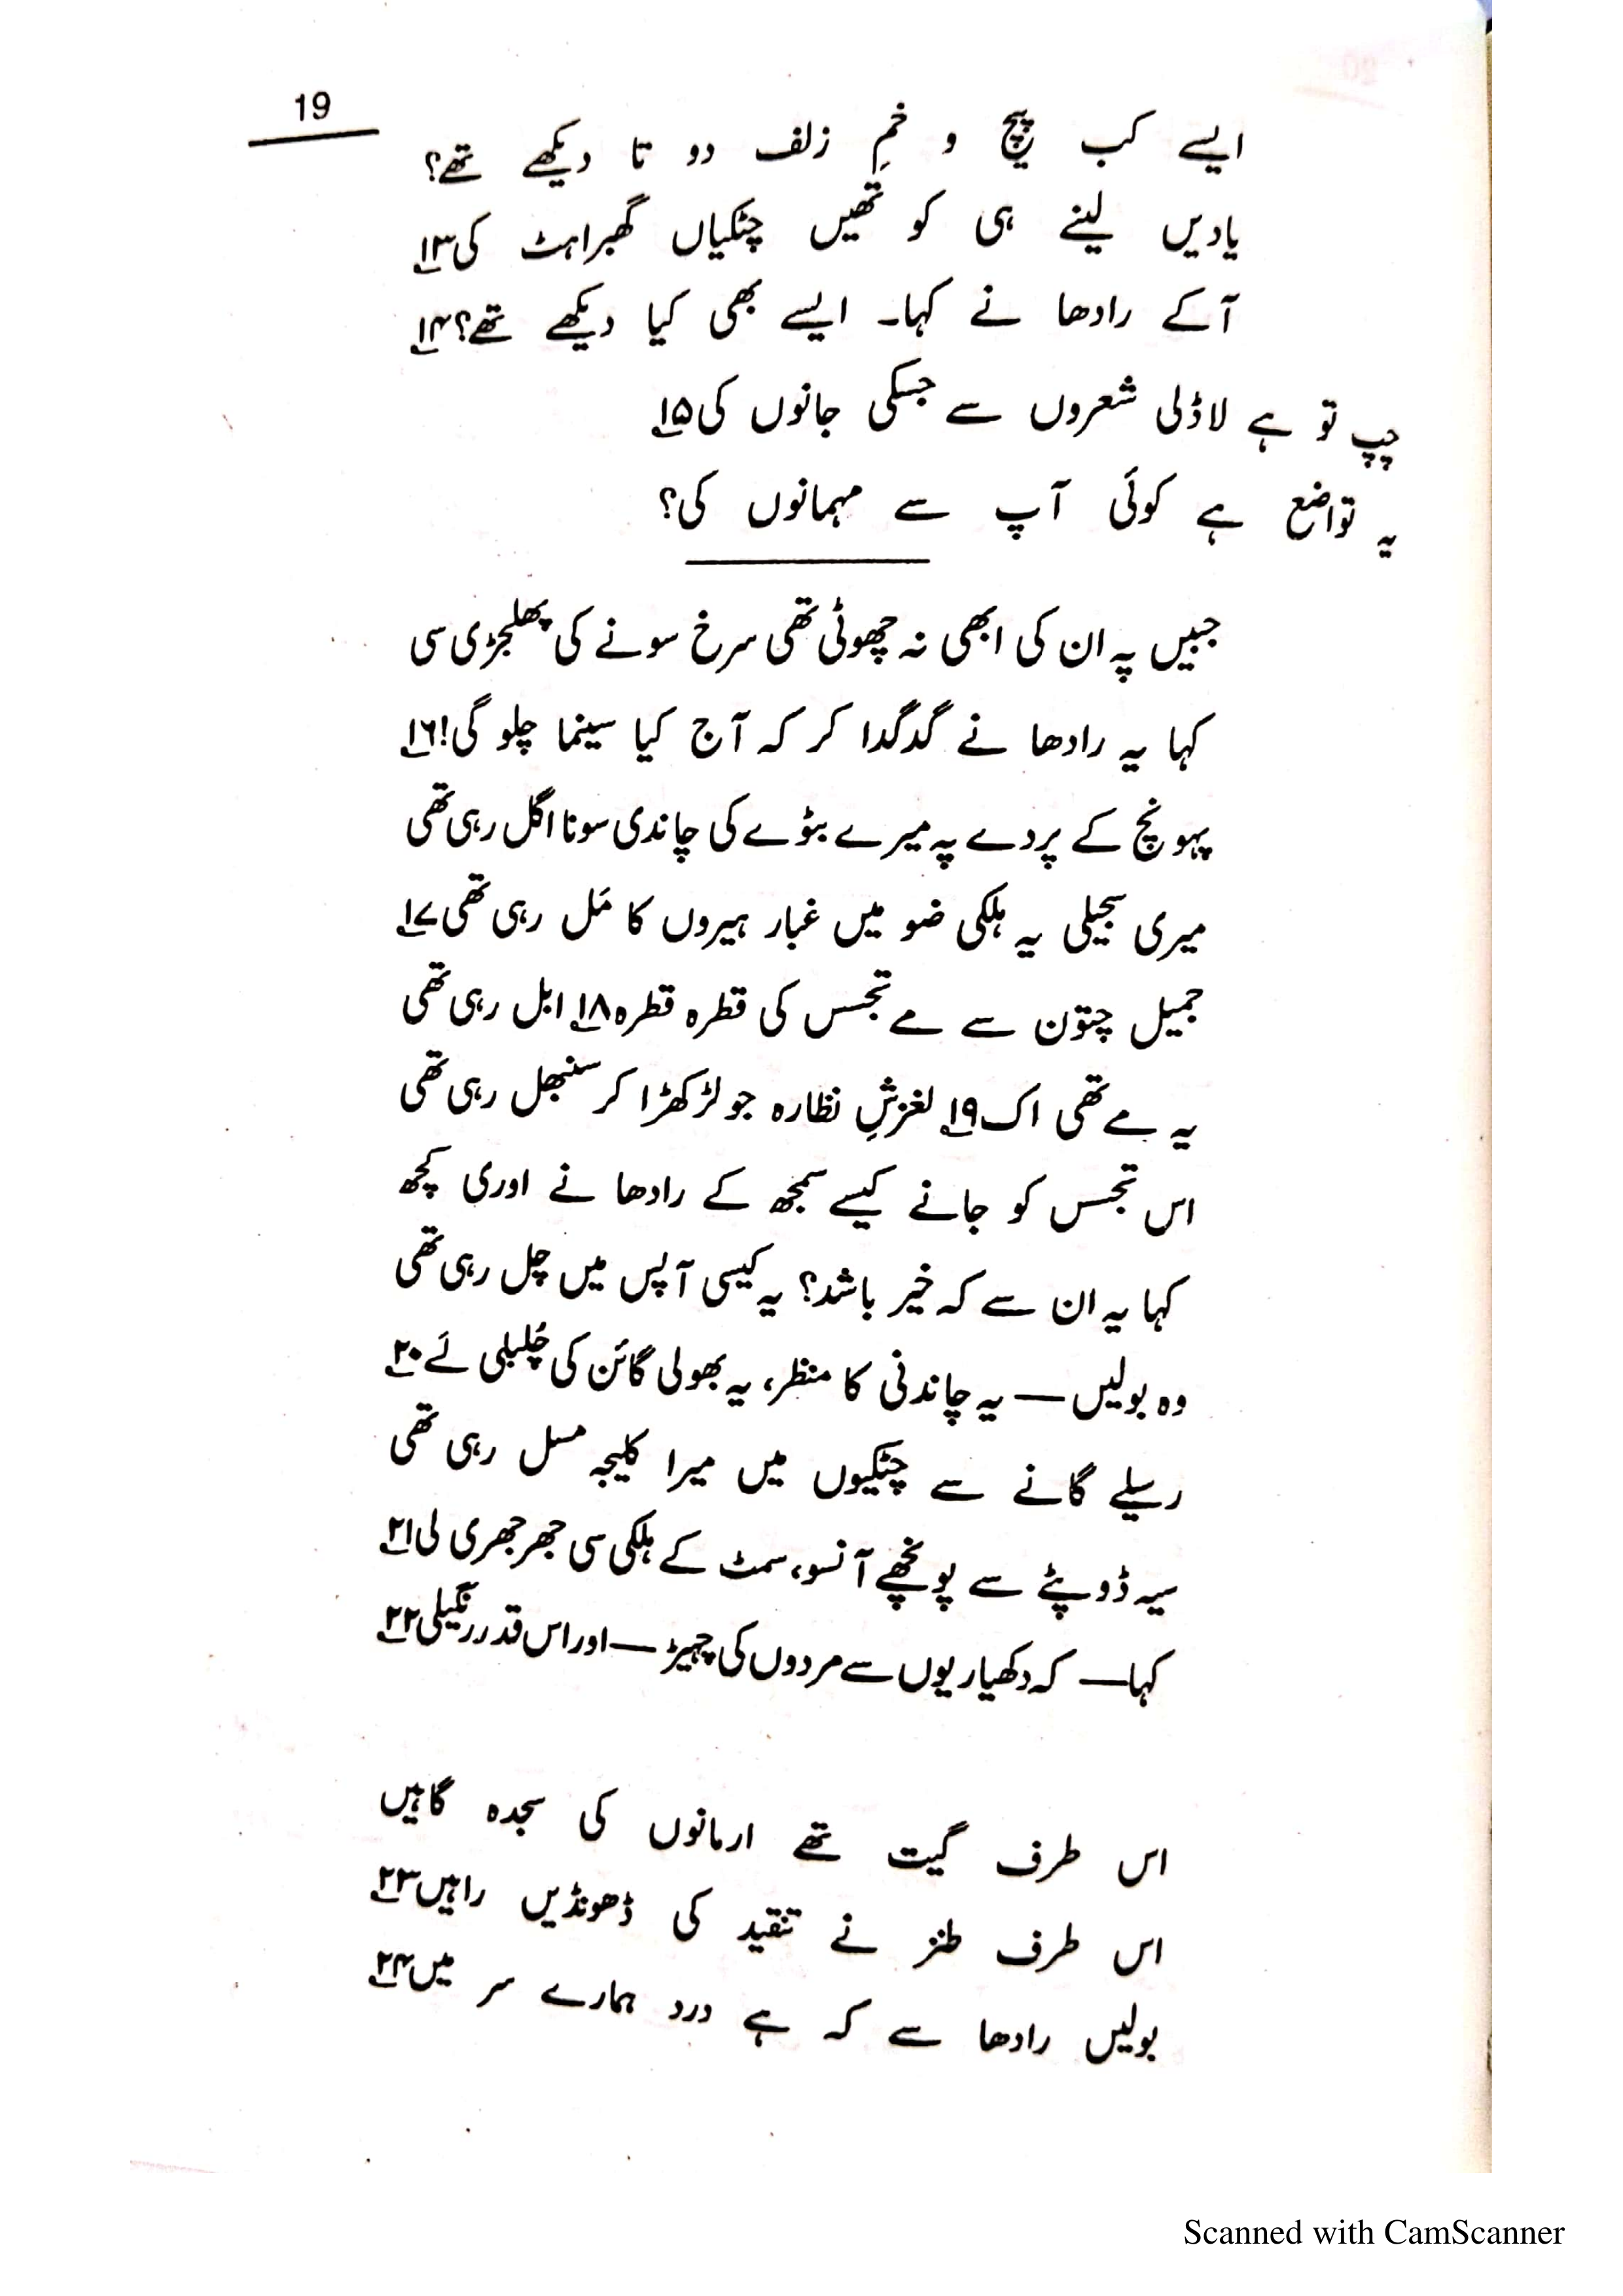 19
ایسے کب پیچ و خمِ زلف دو تا دیکھے تھے؟
یادیں لینے ہی کو تھیں چٹکیاں گھبراہٹ کی۱۳
آکے رادھا نے کہا۔ ایسے بھی کیا دیکھے تھے؟۱۴
چپ تو ہے لاڈلی شعروں سے جسکی جانوں کی۱۵
یہ تواضع ہے کوئی آپ سے مہمانوں کی؟
جبیں پہ ان کی ابھی نہ چھوٹی تھی سرخ سونے کی پھلجڑی سی
کہا یہ رادھا نے گدگدا کر کہ آج کیا سینما چلو گی!۱۶
پہونچ کے پردے پہ میرے بٹوے کی چاندی سونا اگل رہی تھی
میری سجیلی یہ ہلکی ضو میں غبار ہیروں کا مَل رہی تھی۱۷
جمیل چتون سے مے تجسس کی قطرہ قطرہ۱۸ ابل رہی تھی
یہ مے تھی اک۱۹ لغزشِ نظارہ جو لڑکھڑا کر سنبھل رہی تھی
اس تجسس کو جانے کیسے سمجھ کے رادھا نے اوری کچھ
کہا یہ ان سے کہ خیر باشد؟ یہ کیسی آپس میں چل رہی تھی
وہ بولیں — یہ چاندنی کا منظر، یہ بھولی گائن کی چُلبلی لَے۲۰
رسیلے گانے سے چٹکیوں میں میرا کلیجہ مسل رہی تھی
سیہ ڈوپٹے سے پونچھے آنسو، سمٹ کے ہلکی سی جھرجھری لی۲۱
کہا — کہ دکھیاریوں سے مردوں کی چھیڑ — اور اس قدر رنگیلی۲۲
اس طرف گیت تھے ارمانوں کی سجدہ گاہیں
اس طرف طنز نے تنقید کی ڈھونڈیں راہیں۲۳
بولیں رادھا سے کہ ہے درد ہمارے سر میں۲۴
Scanned with CamScanner